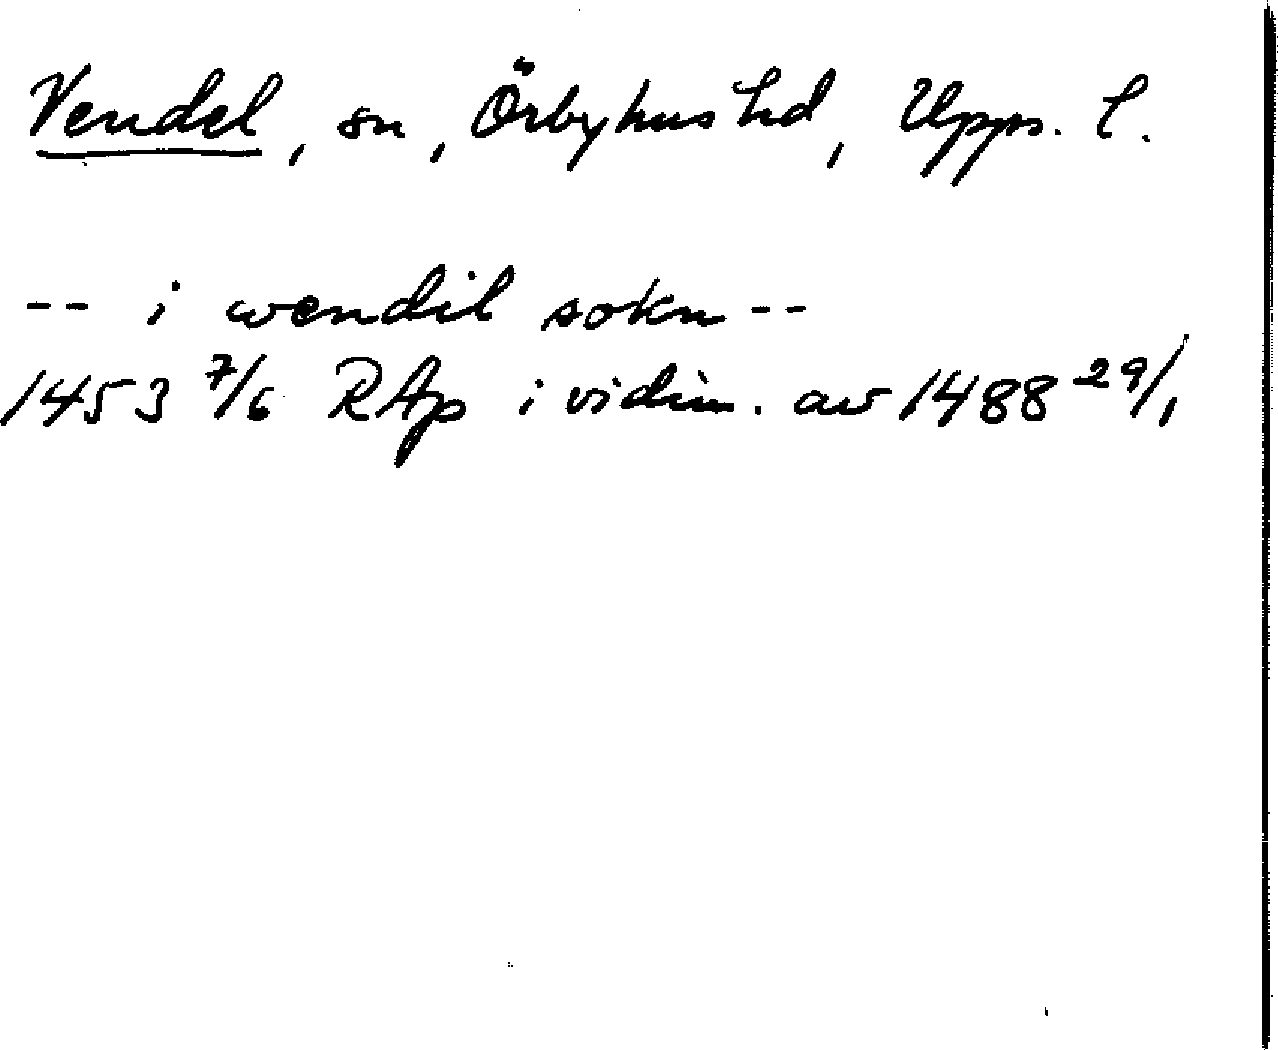 Vendel, sn, Örbyhus hd, Upps. l.
-- i wendil sokn --
1453 7/6 RAp i vidim. av 1488 29/1